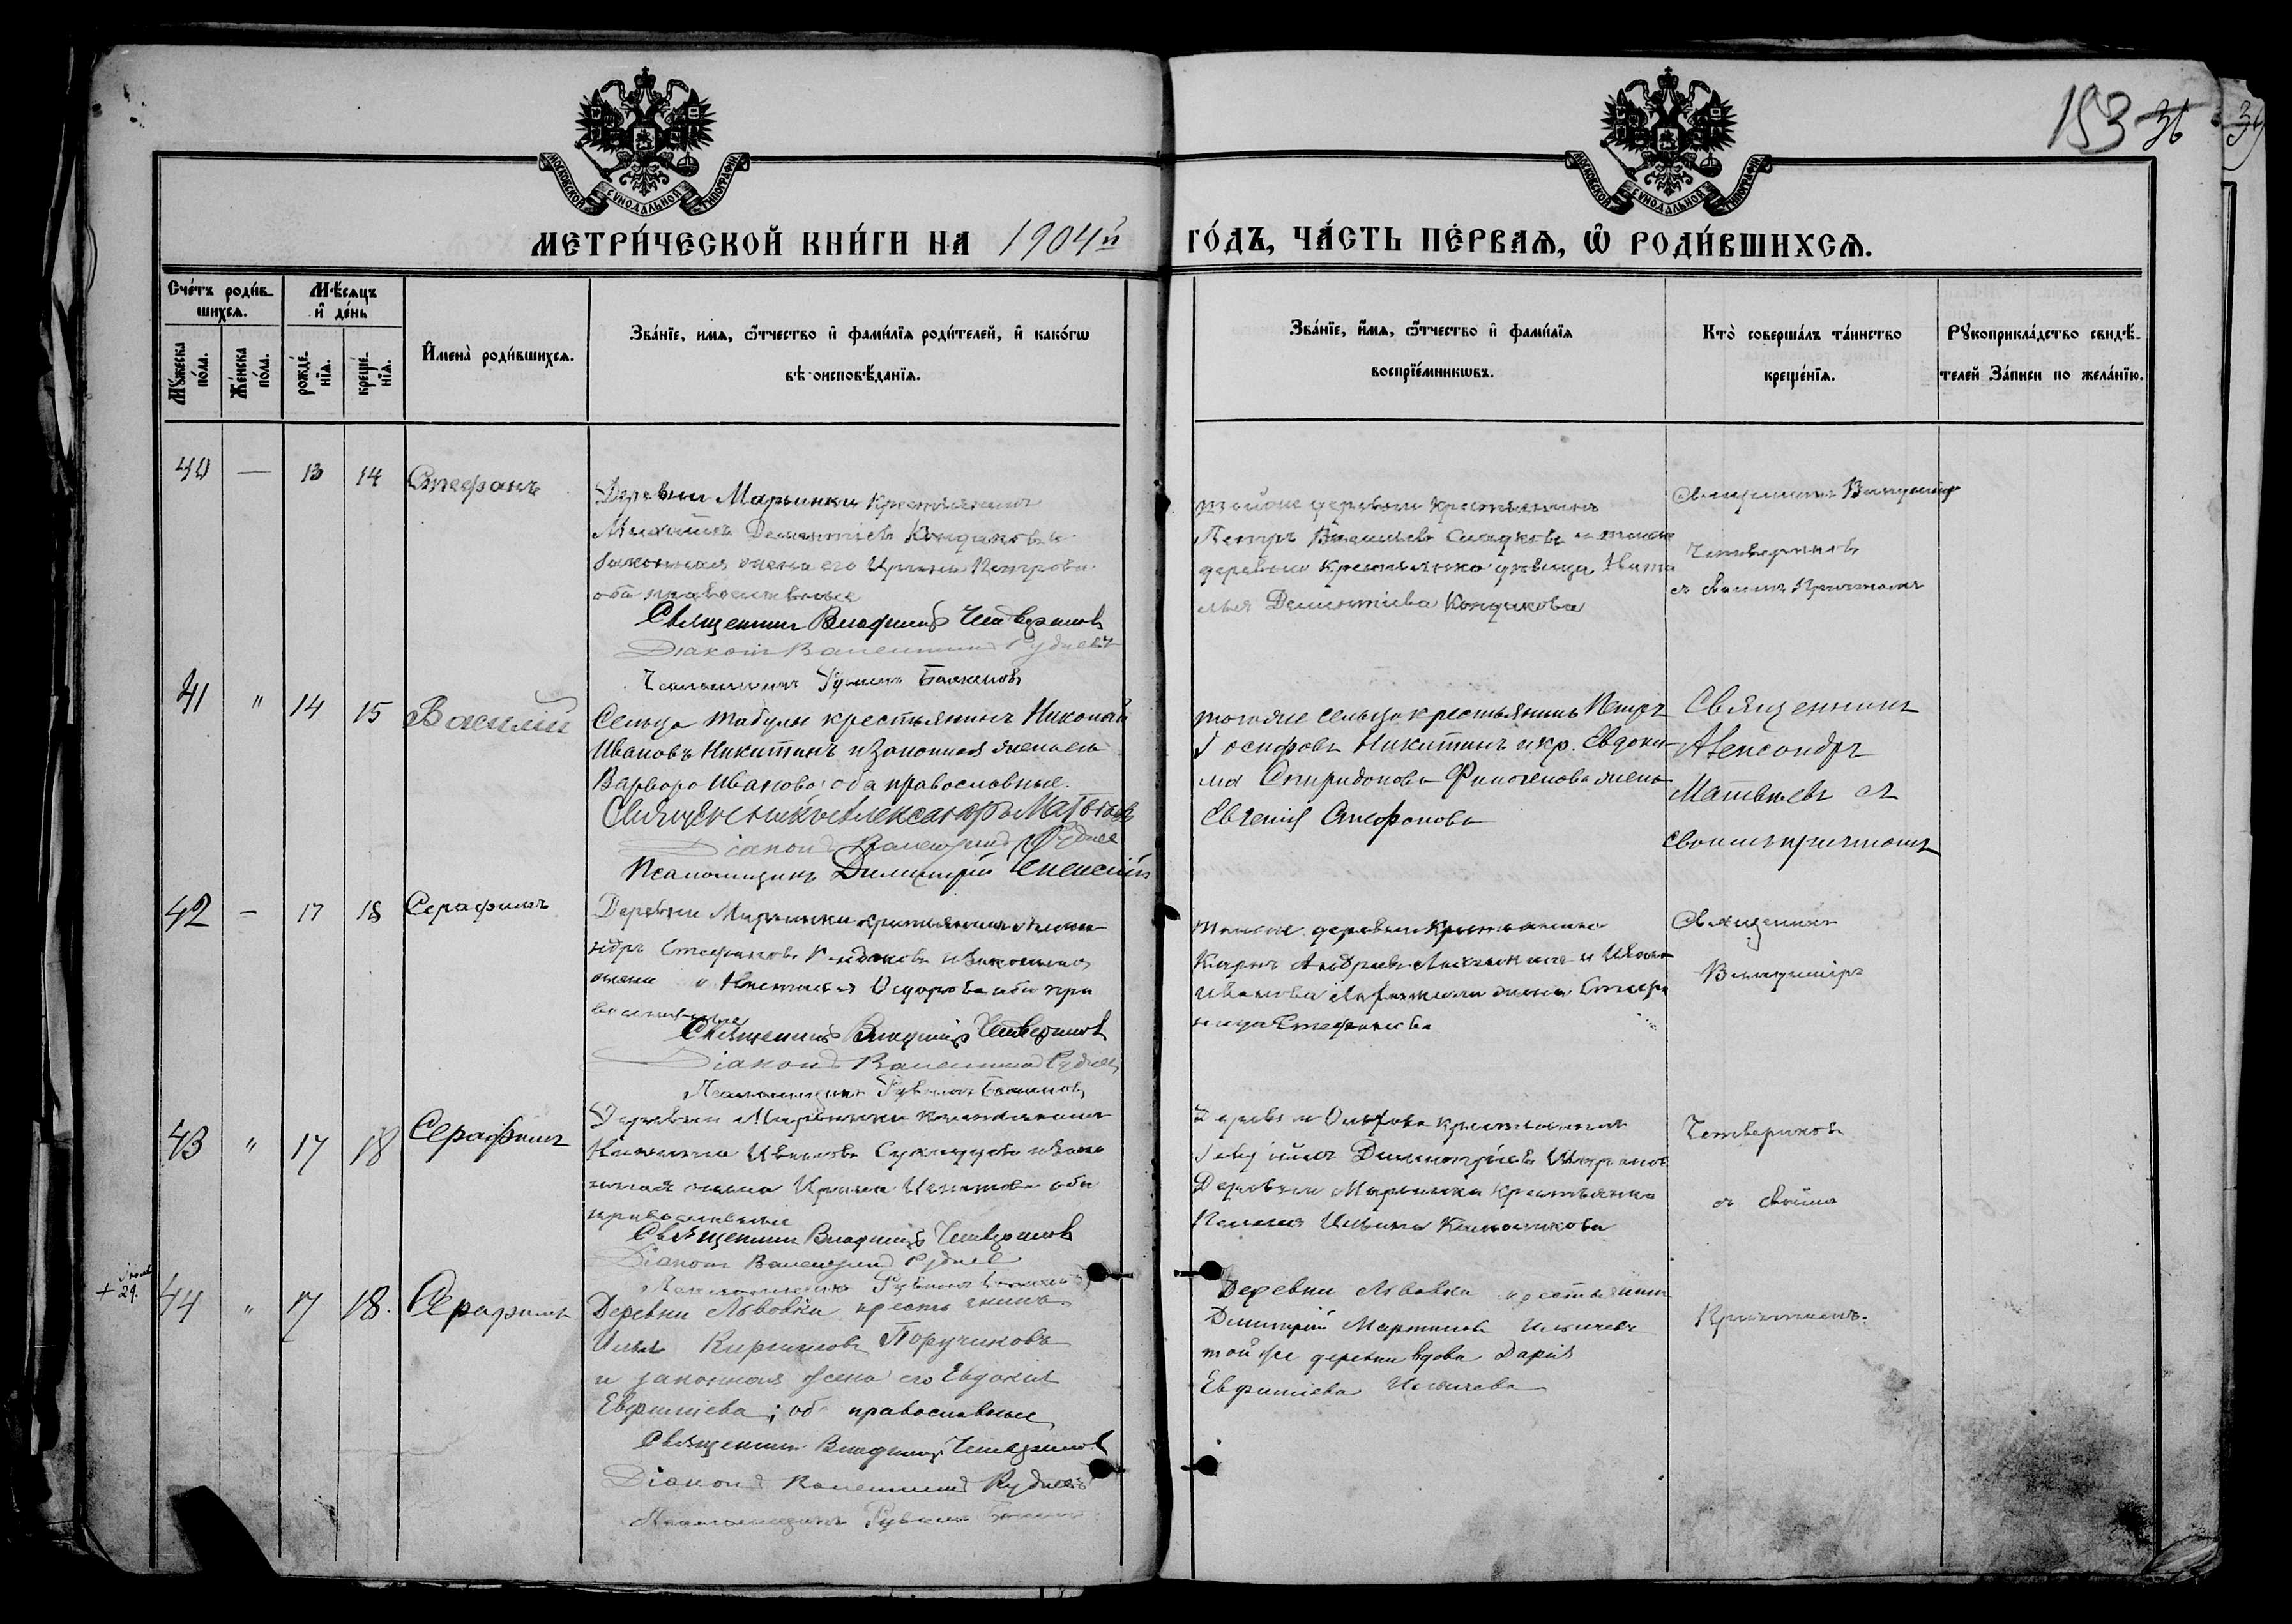 153 36
39
МОСКОВСКОЙ СѴНОДАЛЬНОЙ ТИПОГРАФІИ
МОСКОВСКОЙ СѴНОДАЛЬНОЙ ТИПОГРАФІИ
МЕТРИ́ЧЕСКОЙ КНИ́ГИ НА 1904й ГО́ДЪ, ЧА́СТЬ ПЕ́РВАѦ, Ѽ РОДИ́ВШИХСѦ.
Сче́тъ роди́в-
шихсѧ.
Мѣ́сѧцъ
и҆ де́нь
Мꙋ́жеска
по́ла.
Же́нска
по́ла.
рожде́-
нїѧ.
креще́-
нїѧ.
И҆мена̀ роди́вшихсѧ.
Зва́нїе, имѧ, ѻ҆́тчество и҆ фами́лїѧ роди́телей, и҆ како́гѡ
вѣроисповѣ́данїѧ.
Зва́нїе, и҆́мѧ, ѻ҆́тчество и҆ фами́лїѧ
воспрїе́мникѡвъ.
Кто̀ соверша́лъ та́инство
креще́нїѧ.
Рꙋкоприкла́дство свидѣ́-
телей За́писи по жела́нїю.
40 — 13 14 Стефанъ
Деревни Марьинки крестьянинъ
Михаилъ Дементіевъ Кондаковъ и
законная жена его Ирина Петрова
оба православные
Священникъ Владиміръ Четвериковъ
Діаконъ Валентинъ Рудневъ
Псаломщикъ
тойже деревни крестьянинъ
Петръ Васильевъ Сладковъ и тойже
деревни крестьянка дѣвица Ната
лья Дементіева Кондакова
Священникъ Владиміръ
Четвериковъ
съ своимъ Причтомъ
41 " 14 15 Василій
Сельца Табулы крестьянинъ Николай
Ивановъ Никитинъ и законная жена его
Варвара Иванова оба православные.
Священникъ Александръ Матвѣевъ
Діаконъ Валентинъ Рудневъ
Псаломщикъ Димитрій
тогоже сельца крестьянинъ Петръ
Іосифовъ Никитинъ и кр. Евдоки-
ма Спиридонова жена
Евгенія Стефанова
Священникъ
Александръ
Матвѣевъ съ
своимъ причтомъ
42 — 17 18 Серафимъ
Деревни Марьинки крестьянинъ Алекса
ндръ Стефановъ и законная
жена Исидорова оба пра
вославные
Священникъ Владиміръ Четвериковъ
Діаконъ Валентинъ Рудневъ
Псаломщикъ
тойже деревни крестьянинъ
и Ивана
Иванова жена Стефа
нида Стефанова
Священникъ
Владиміръ
43 " 17 18 Серафимъ
Деревни Марьинки крестьянинъ
Ивановъ и зако
нная жена Ирина Игнатова оба
православные
Священникъ Владиміръ Четвериковъ
Діаконъ Валентинъ Рудневъ
Псаломщикъ
Деревни крестьянинъ
Димитріевъ
Деревни Марьинки крестьянка
Пелагія Ильина
Четвериковъ
съ своимъ
+ 29.
44 " 17 18. Серафимъ
Деревни Львовки крестьянинъ
Илья Кирилловъ Поручиковъ
и законная жена его Евдокія
Евфиміева; оба православные
Священникъ Владиміръ Четвериковъ
Діаконъ Валентинъ Рудневъ
Псаломщикъ
Деревни Львовки крестьянинъ
Димитрій Мартиновъ Ильичевъ
той же деревни вдова Дарія
Евфиміева Ильичева
Причтомъ.